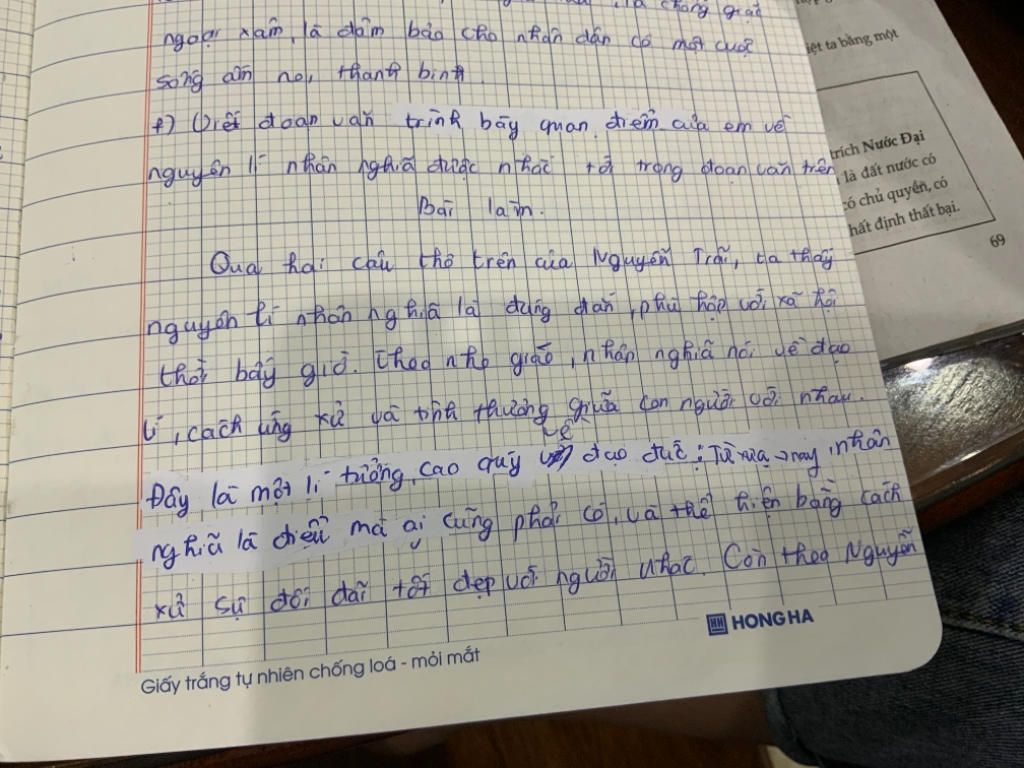 là chống giặc
ngoại xâm, là đảm bảo cho nhân dân có một cuộc
sống ấm no, thanh bình.
f) Viết đoạn văn trình bày quan điểm của em về
nguyên lí nhân nghĩa được nhắc tới trong đoạn văn trên
Bài làm.
Qua hai câu thơ trên của Nguyễn Trãi, ta thấy
nguyên lí nhân nghĩa là đúng đắn, phù hợp với xã hội
thời bấy giờ. Theo nho giáo, nhân nghĩa nói về đạo
lí, cách ứng xử và tình thương giữa con người với nhau.
Đấy là một lí tưởng cao quý về đạo đức; Từ xưa → nay, nhân
nghĩa là điều mà ai cũng phải có, và thể hiện bằng cách
xử sự đối đãi tốt đẹp với người khác. Còn theo Nguyễn
HONG HA
Giấy trắng tự nhiên chống loá - mỏi mắt
iệt ta bằng một
trích Nước Đại
là đất nước có
có chủ quyền, có
hất định thất bại.
69